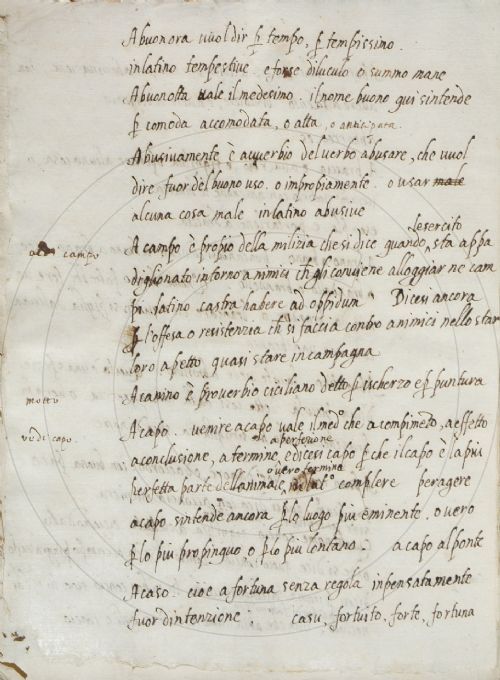 Abuonora vuol dir ꝑ tempo, ꝑ tempissimo.
in latino tempestive e forse diluculo o summo mane
Abuonotta vale il medesimo. il nome buono qui s'intende
ꝑ comoda accomodata, o alta, o anticipata.
Abusivamente è avverbio del verbo abusare, che vuol
dire fuor del buono uso. o impropiamente. o usar male
alcuna cosa male in latino abusive
lesercito
campo
A campo è propio della milizia che si dice quando sta appa
diglionato intorno a nimici ch gli conviene alloggiar ne cam
pi latino castra habere ad oppidum Dicesi ancora
ꝑ l'offesa o resistenzia ch si faccia contro a nimici nello star
loro a petto quasi stare in campagna
A canino è proverbio ciciliano detto ꝑ ischerzo e ꝑ puntura
motto
vedi capo.
A capo. venire a capo vale il med.o che a compimeto, a effetto
a perfezione
a conclusione, a termine, e dicesi capo ꝑ che il capo è la piu
o vero termina
perfetta parte dell animale, in lat.o complere peragere
a capo s'intende ancora ꝑ lo luogo piu eminente. o vero
ꝑ lo piu propinquo o ꝑ lo piu lontano. a capo al ponte
A caso. cioè a fortuna senza regola inpensatamente
fuor d intenzione casu, fortuito, forte, fortuna